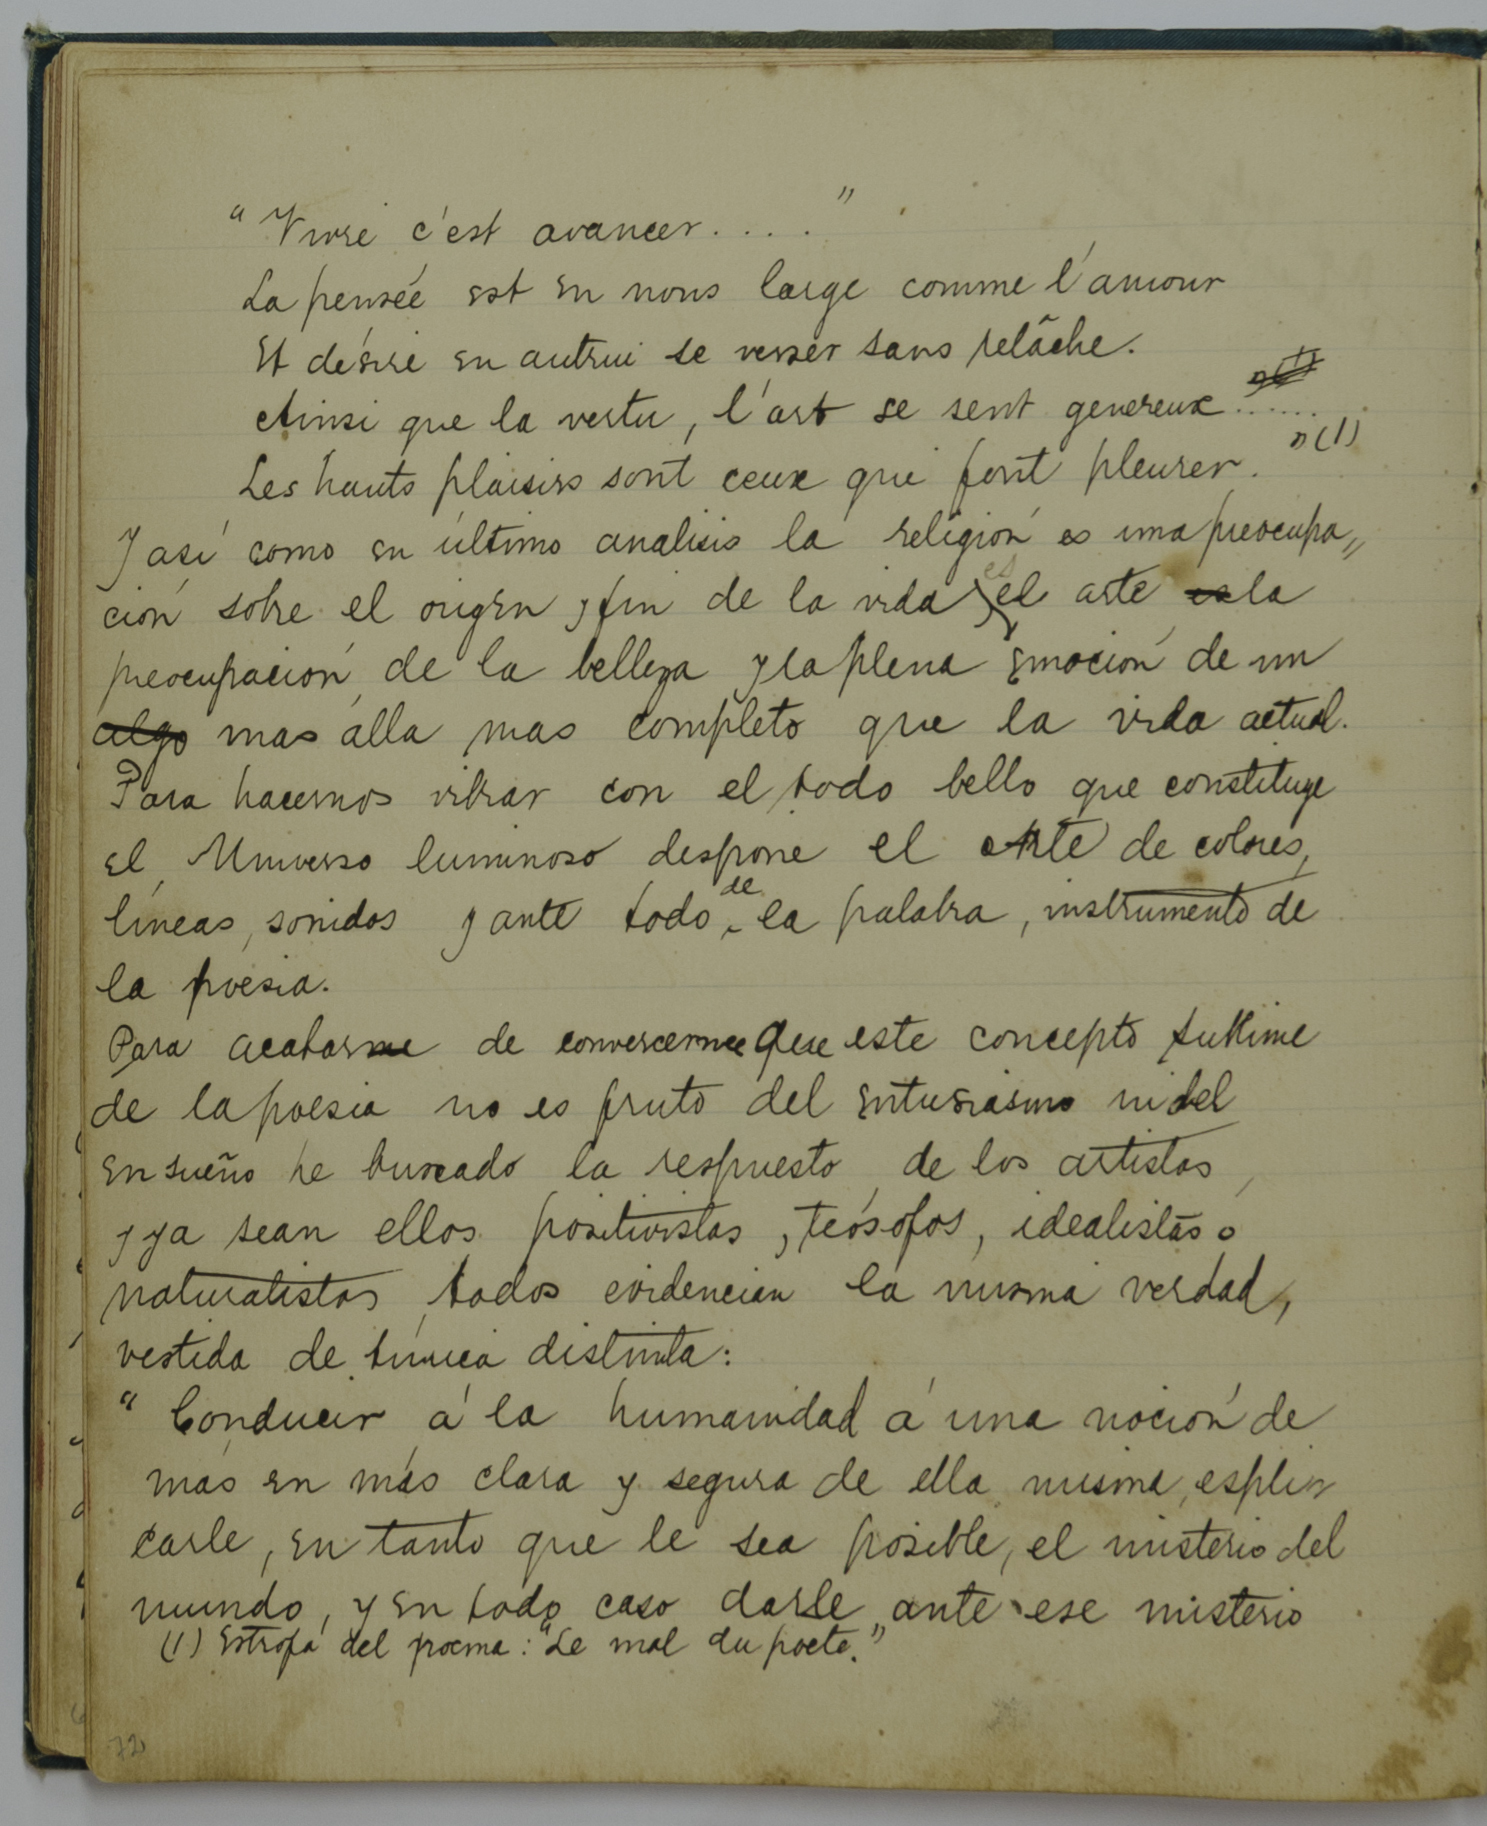 "Vivre c'est avancer. . . . "
La pensée est en nous large comme l'amour
Et désire en autrui se verser sans relâche.
Ainsi que la vertu, l'art se sent genereux ......
Les hauts plaisirs sont ceux qui font pleurer. "(1)
Y así como en último analisis la religión es una preocupa„
ción sobre el origen y fin de la vida es el arte es la
preocupación de la belleza y la plena emoción de un
algo mas alla mas completo que la vida actual.
Para hacernos vibrar con el todo bello que constituye
el Universo luminoso despone el Arte de colores,
líneas, sonidos y ante todo de la palabra, instrumento de
la poesia.
Para acabarme de convercerme que este concepto sublime
de la poesia no es fruto del entusiasmo ni del
ensueño he buscado la respuesto de los artistas,
y ya sean ellos positivistas, teósofos, idealistas o
naturalistas todos evidencian la misma verdad,
vestida de túnica distinta:
" Conducir á la humanidad á una noción de
más en más clara y segura de ella misma, espli-
carle, en tanto que le sea posible, el misterio del
mundo, y en todo caso darle ante ese misterio
(1) Estrofa del poema: "Le mal du poete."
72